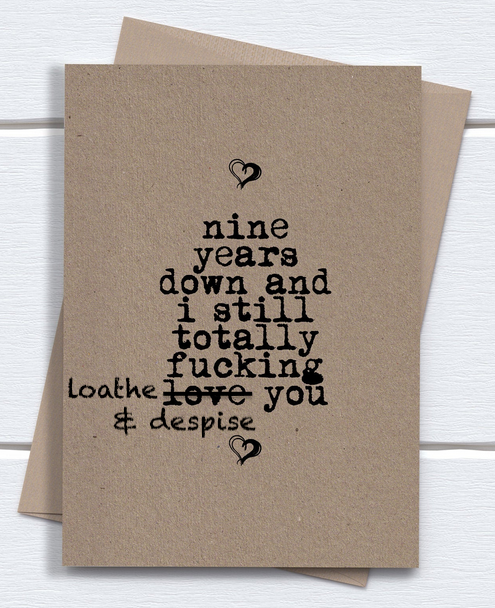 nine
years
down and
i still
totally
fucking
loathe love you
& despise